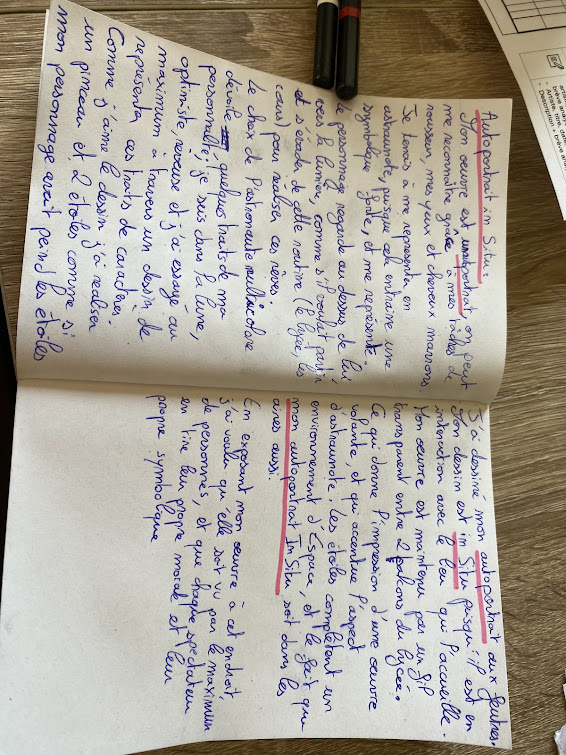 Autoportrait in Situ:
Mon œuvre est autoportrait, on peut
me reconnaître grâce à mes tâches de
rousseur, mes yeux et cheveux marrons.
Je tenais à me représenter en
astraunote, puisque cela entraîne une
symbolique forte, et me représente.
Le personnage regarde au dessus de lui
vers la lumière, comme s'il voulait partir
et s'évader de cette routine (le lycée, les
cours) pour réaliser ces rêves.
Le choix de l'astronaute multicolore
dévoile quelques traits de ma
personnalité; je suis dans la lune,
optimiste, rêveuse et j'ai essayé au
maximum à travers un dessin de
représenter ces traits de caractères.
Comme j'aime le dessin j'ai réaliser
un pinceau et 2 étoiles comme si
mon personnage avait peind les étoiles
J'ai dessiné mon autoportrait aux feutres.
Mon dessin est in Situ puisqu'il est en
interaction avec le lieu qui l'accueille.
Mon œuvre est maintenu par un fil
transparent entre 2 balcons du lycée.
Ce qui donne l'impression d'une œuvre
volante, et qui accentue l'aspect
d'astraunote. Les étoiles complètent un
environnement d'Espace, et le fait que
mon autoportrait In Situ soit dans les
aires aussi.
En exposant mon œuvre à cet endroit,
j'ai voulu qu'elle soit vu par le maximum
de personnes, et que chaque spectateur
en tire leur propre morale et leur
propre symbolique
brève ana
- Artiste, titre, date
- Description + brève an